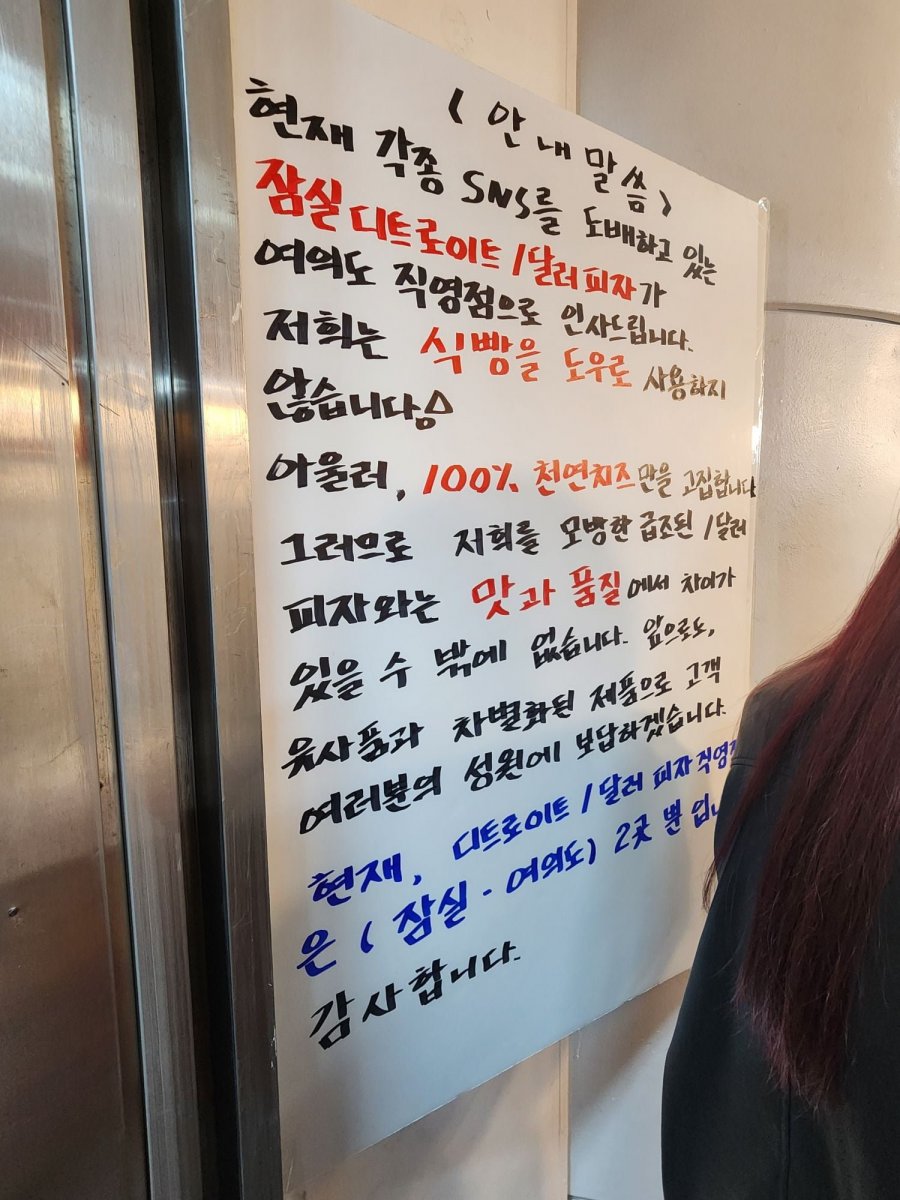 < 안내말씀 >
현재 각종 SNS를 도배하고 있는
잠실디트로이트 1달러피자가
여의도 직영점으로 인사드립니다.
저희는 식빵을 도우로 사용하지
않습니다.
아울러, 100% 천연치즈만을 고집합니다
그러므로 저희를 모방한 급조된 1달러
피자와는 맛과 품질에서 차이가
있을 수 밖에 없습니다. 앞으로도,
유사품과 차별화된 제품으로 고객
여러분의 성원에 보답하겠습니다.
현재, 디트로이트 1달러 피자 직영
은 (잠실 - 여의도) 2곳 뿐
감사합니다.